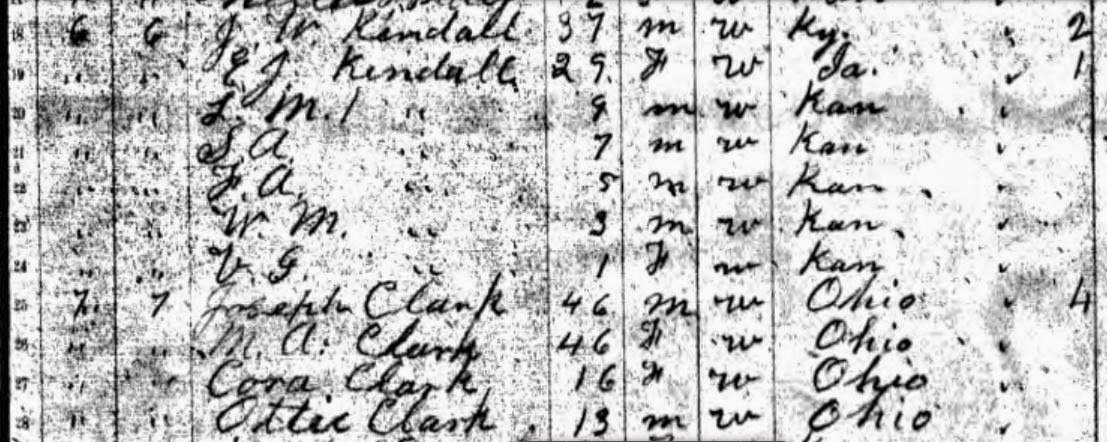 18 6 6 J. W. Kendall 37 m w Ky. " 2
19 " " E J Kendall 29 F w Ia. " 1
20 " " L. M. " 9 m w Kan "
21 " " S. A. " 7 m w Kan "
" " F. A. " 5 m w Kan "
23 " " W. M. " 3 m w Kan "
24 " " V. G. " 1 F w Kan "
25 7 7 Joseph Clark 46 m w Ohio " 4
26 " " M. A. Clark 46 F w Ohio "
27 " " Cora Clark 16 F w Ohio "
28 " " Ottie Clark 13 m w Ohio "